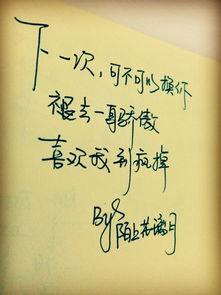 下一次,可不可以换你
褪去一身骄傲
喜欢我到疯掉
By 陌上 月